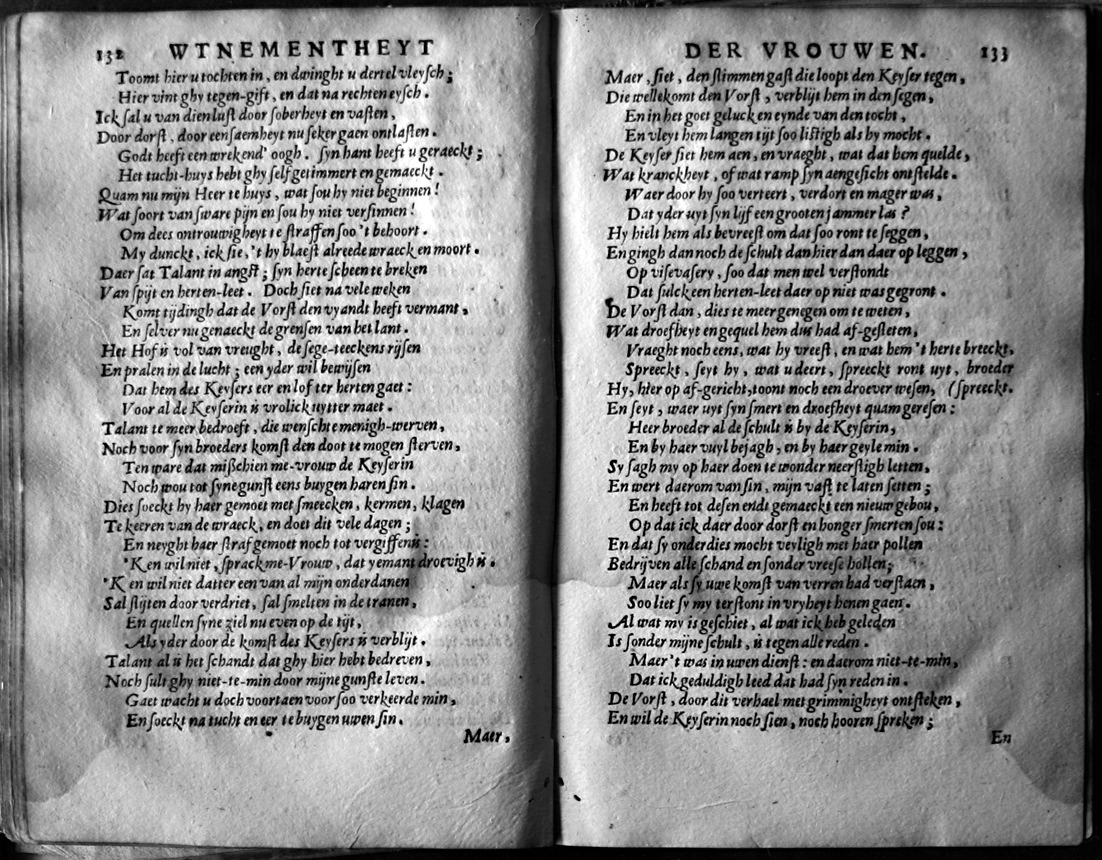 132 WTNEMENTHEYT
Toomt hier u tochten in, en dwinght u dertel vleysch;
Hier vint ghy tegen-gift, en dat na rechten eysch.
Ick sal u van dien lust door soberheyt en vasten,
Door dorst, door eensaemheyt nu seker gaen ontlasten.
Godt heeft een wrekend' oogh. syn hant heeft u geraeckt;
Het tucht-huys hebt ghy self getimmert en gemaeckt.
Quam nu mijn Heer te huys, wat sou hy niet beginnen!
Wat soort van sware pijn en sou hy niet versinnen!
Om dees ontrouwigheyt te straffen soo 't behoort.
My dunckt, ick sie, 't hy blaest alreede wraeck en moort.
Daer sat Talant in angst; syn herte scheen te breken
Van spijt en herten-leet. Doch siet na vele weken
Komt tijdingh dat de Vorst den vyandt heeft vermant,
En selver nu genaeckt de grensen van het lant.
Het Hof is vol van vreught, de sege-teeckens rijsen
En pralen in de lucht; een yder wil bewijsen
Dat hem des Keysers eer en lof ter herten gaet:
Voor al de Keyserin is vrolick uytter maet.
Talant te meer bedroeft, die wenschte menigh-werven,
Noch voor syn broeders komst den doot te mogen sterven,
Ten ware dat mißchien me-vrouw de Keyserin
Noch wou tot syne gunst eens buygen haren sin.
Dies soeckt hy haer gemoet met smeecken, kermen, klagen
Te keeren van de wraeck, en doet dit vele dagen;
En neyght haer straf gemoet noch tot vergiffenis:
'K en wil niet, sprack me-Vrouw, dat yemant droevigh is.
'K en wil niet datter een van al mijn onderdanen
Sal slijten door verdriet, sal smelten in de tranen,
En quellen syne ziel nu even op de tijt,
Als yder door de komst des Keysers is verblijt.
Talant al is het schandt dat ghy hier hebt bedreven,
Noch sult ghy niet-te-min door mijne gunste leven.
Gaet wacht u doch voortaen voor soo verkeerde min,
En soeckt na tucht en eer te buygen uwen sin.
Maer,
DER VROUWEN. 133
Maer, siet, den slimmen gast die loopt den Keyser tegen,
Die wellekomt den Vorst, verblijt hem in den segen,
En in het goet geluck en eynde van den tocht,
En vleyt hem langen tijt soo listigh als hy mocht.
De Keyser siet hem aen, en vraeght, wat dat hem quelde,
Wat kranckheyt, of wat ramp syn aengesicht ontstelde.
Waer door hy soo verteert, verdort en mager was,
Dat yder uyt syn lijf een grooten jammer las?
Hy hielt hem als bevreest om dat soo ront te seggen,
En gingh dan noch de schult dan hier dan daer op leggen,
Op visevasery, soo dat men wel verstondt
Dat sulck een herten-leet daer op niet was gegront.
De Vorst dan, dies te meer genegen om te weten,
Wat droefheyt en gequel hem dus had af-gesleten,
Vraeght noch eens, wat hy vreest, en wat hem 't herte breeckt,
Spreeckt, seyt hy, wat u deert, spreeckt ront uyt, broeder
Hy, hier op af-gericht, toont noch een droever wesen, (spreeckt.
En seyt, waer uyt syn smert en droefheyt quam geresen:
Heer broeder al de schult is by de Keyserin,
En by haer vuyl bejagh, en by haer geyle min.
Sy sagh my op haer doen te wonder neerstigh letten,
En wert daerom van sin, mijn vast te laten setten;
En heeft tot desen endt gemaeckt een nieuw gebou,
Op dat ick daer door dorst en honger smerten sou:
En dat sy onder dies mocht veyligh met haer pollen
Bedrijven alle schand en sonder vreese hollen;
Maer als sy uwe komst van verren had verstaen,
Soo liet sy my terstont in vryheyt henen gaen.
Al wat my is geschiet, al wat ick heb geleden
Is sonder mijne schult, is tegen alle reden.
Maer 't was in uwen dienst: en daerom niet-te-min,
Dat ick geduldigh leed dat had syn reden in.
De Vorst, door dit verhael met grimmigheyt ontsteken,
En wil de Keyserin noch sien, noch hooren spreken;
En